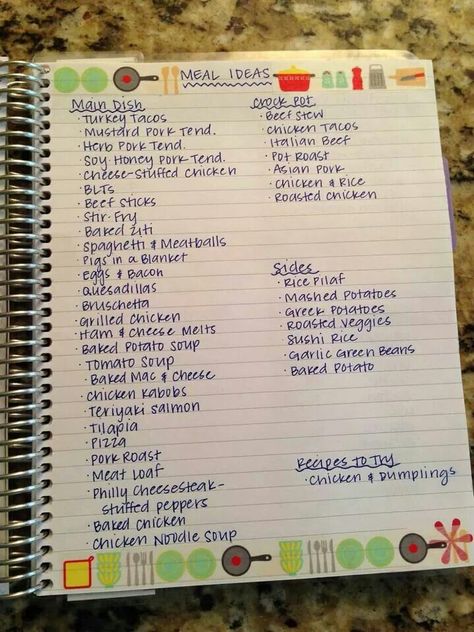 MEAL IDEAS
Main Dish
· Turkey Tacos
· Mustard Pork Tend.
· Herb Pork Tend.
· Soy Honey Pork Tend.
· Cheese-Stuffed Chicken
· BLTs
· Beef Sticks
· Stir Fry
· Baked Ziti
· Spaghetti & Meatballs
· Pigs in a Blanket
· Eggs & Bacon
· Quesadillas
· Bruschetta
· Grilled Chicken
· Ham & Cheese Melts
· Baked Potato Soup
· Tomato Soup
· Baked Mac & Cheese
· Chicken Kabobs
· Teriyaki Salmon
· Tilapia
· Pizza
· Pork Roast
· Meat Loaf
· Philly Cheesesteak-
stuffed peppers
· Baked Chicken
· Chicken Noodle Soup
Crock Pot
· Beef Stew
· Chicken Tacos
· Italian Beef
· Pot Roast
· Asian Pork
· Chicken & Rice
· Roasted Chicken
Sides
· Rice Pilaf
· Mashed Potatoes
· Greek Potatoes
· Roasted Veggies
· Sushi Rice
· Garlic Green Beans
· Baked Potato
Recipes to Try
· Chicken & Dumplings